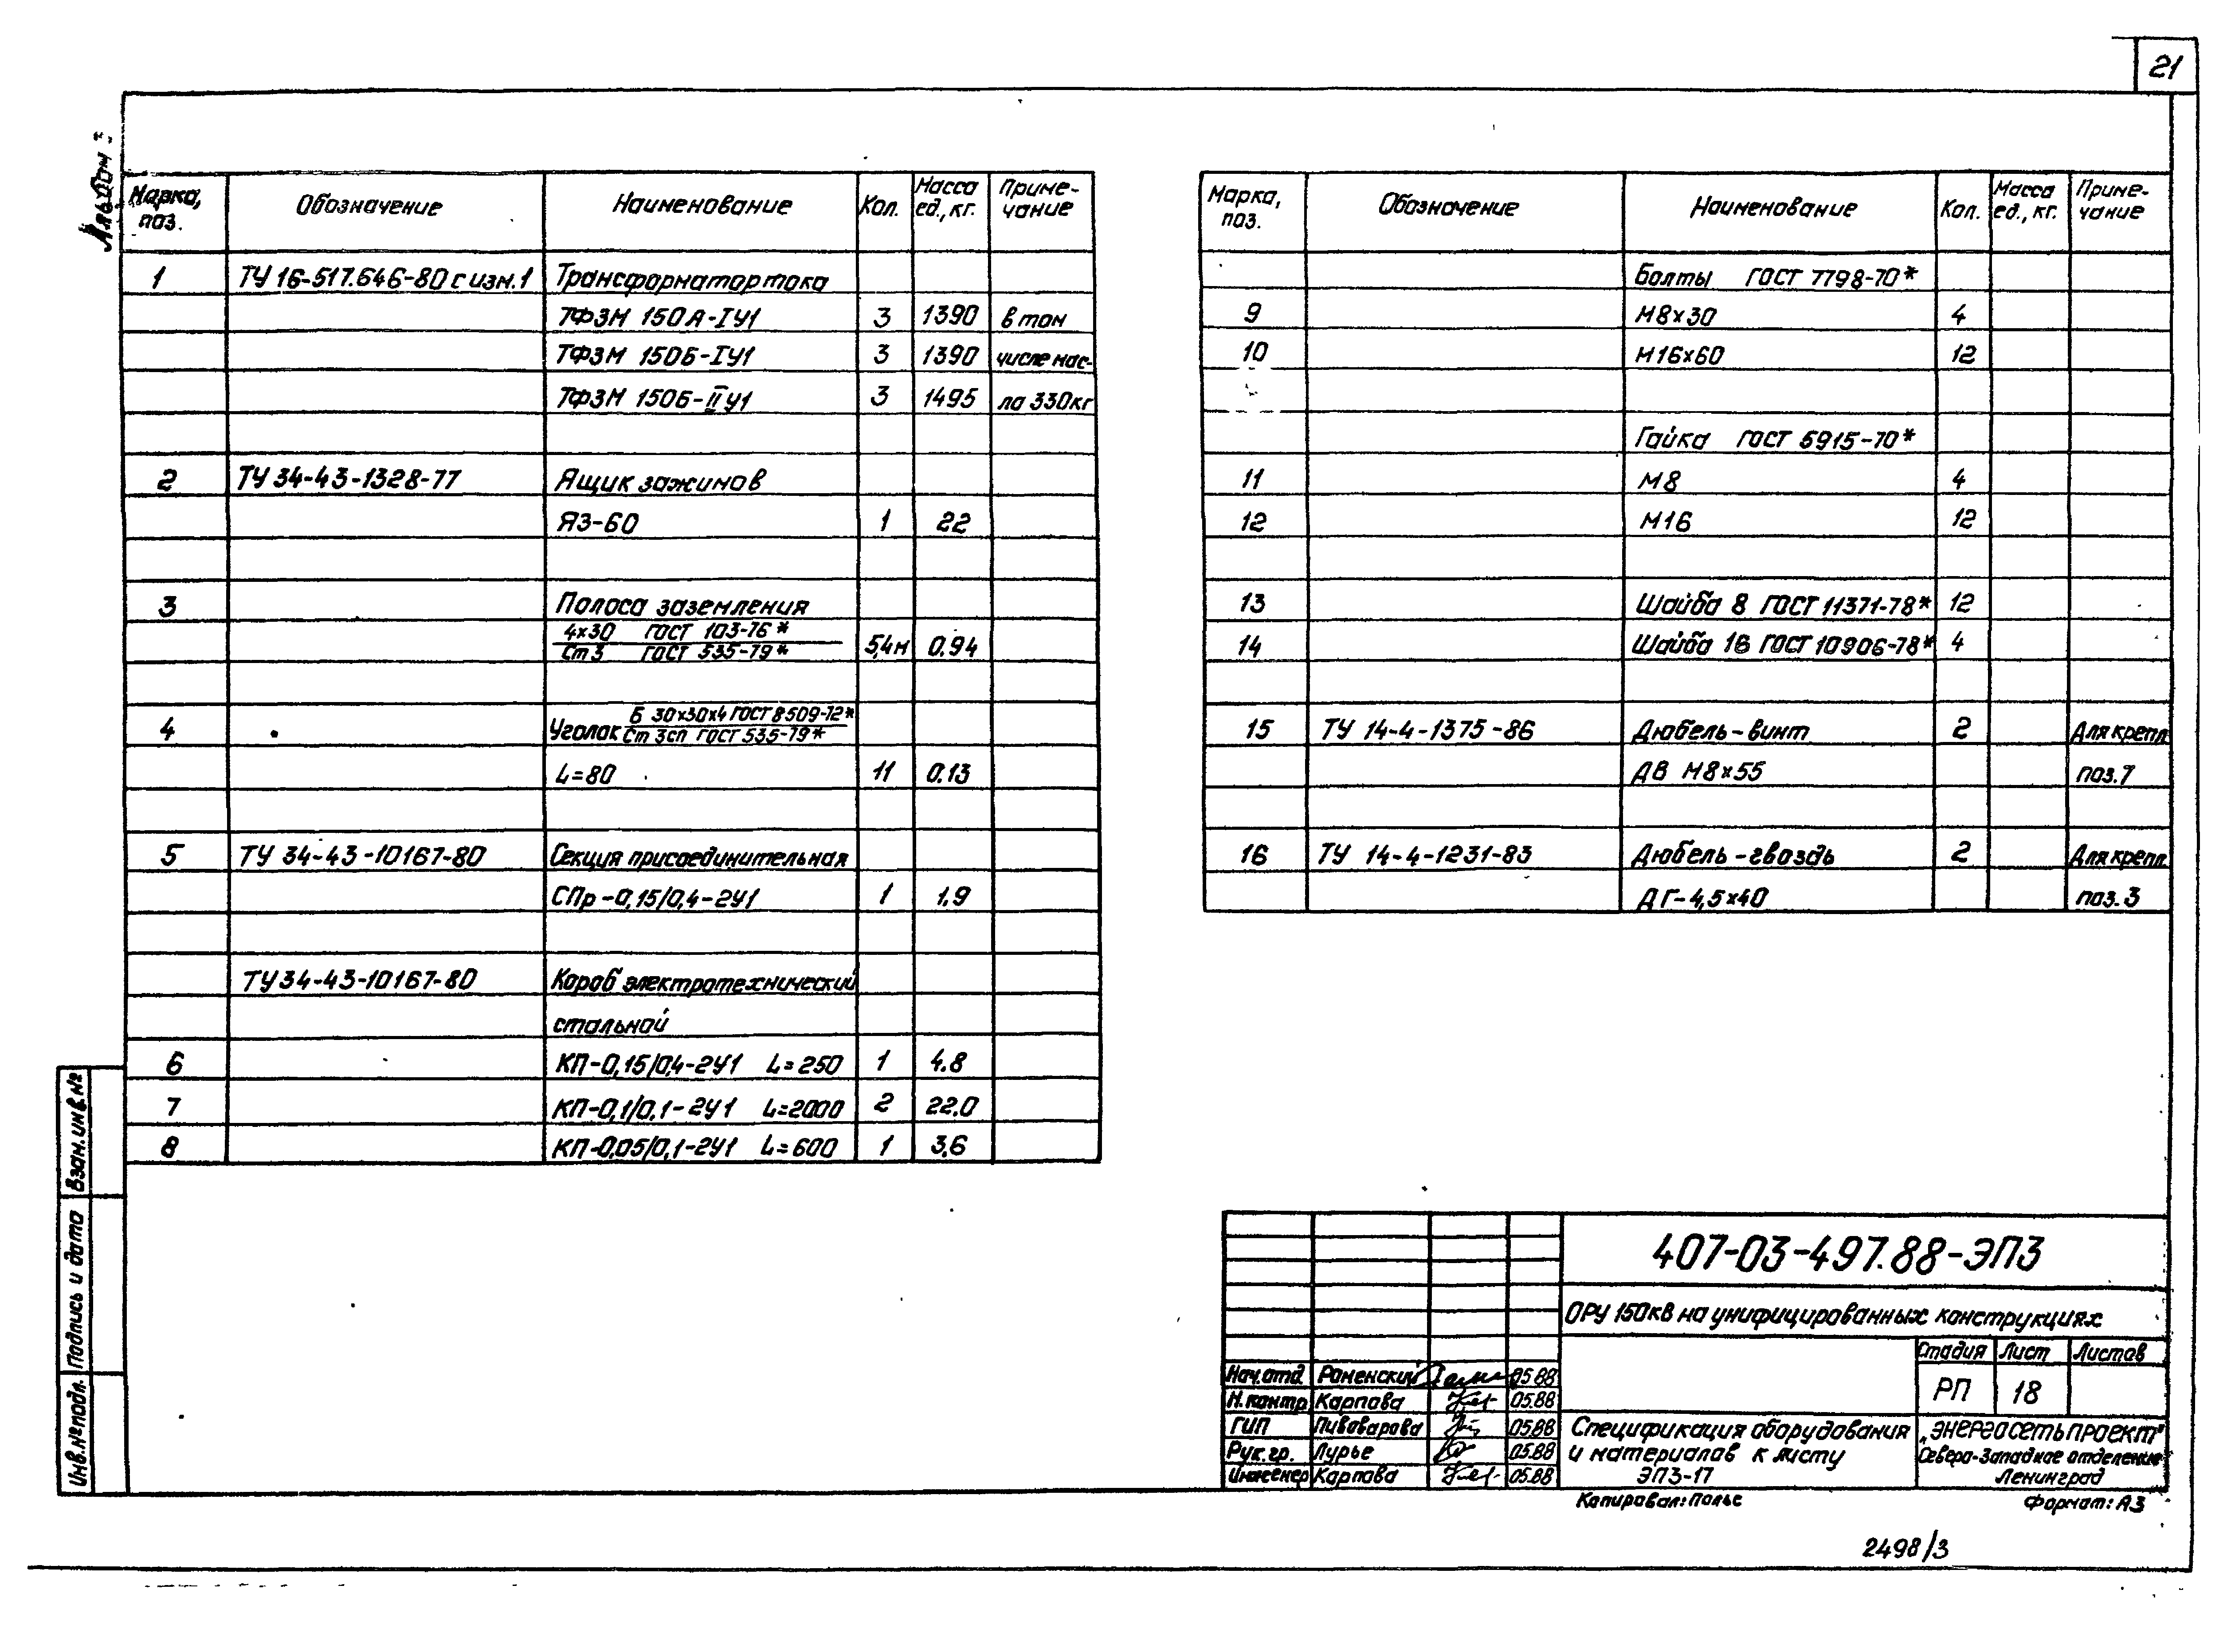 21
Альбом 3
Марка, поз. Обозначение Наименование Кол. Масса ед., кг. Приме-чание
1 ТУ 16-517.646-80 с изм.1 Трансформатор тока
ТФЗМ 150А-IУ1 3 1390 в том
ТФЗМ 150Б-IУ1 3 1390 числе мас-
ТФЗМ 150Б-IIУ1 3 1495 ла 330кг
2 ТУ 34-43-1328-77 Ящик зажимов
ЯЗ-60 1 22
3 Полоса заземления
4х30 ГОСТ 103-76*
Ст3 ГОСТ 535-79* 5,4м 0.94
Б 30х30х4 ГОСТ 8509-72*
4 Уголок Ст 3сп ГОСТ 535-79*
L=80 11 0.13
5 ТУ 34-43-10167-80 Секция присоединительная
СПр-0,15/0,4-2У1 1 1.9
ТУ 34-43-10167-80 Короб электротехнический
стальной
6 КП-0,15/0,4-2У1 L=250 1 4.8
7 КП-0,1/0,1-2У1 L=2000 2 22.0
8 КП-0,05/0,1-2У1 L=600 1 3.6
Марка, поз. Обозначение Наименование Кол. Масса ед., кг. Приме-чание
Болты ГОСТ 7798-70*
9 М8х30 4
10 М16х60 12
Гайка ГОСТ 5915-70*
11 М8 4
12 М16 12
13 Шайба 8 ГОСТ 11371-78* 12
14 Шайба 16 ГОСТ 10906-78* 4
15 ТУ 14-4-1375-86 Дюбель-винт 2 Для крепл
ДВ М8х55 поз.7
16 ТУ 14-4-1231-83 Дюбель-гвоздь 2 Для крепл.
ДГ-4,5х40 поз.3
Взам. инв.№
Подпись и дата
Инв.№ подл.
407-03-497.88-ЭП3
ОРУ 150кВ на унифицированных конструкциях
Стадия Лист Листов
РП 18
Нач.отд. Роменский 05.88
Н.контр. Карпова 05.88
ГИП Пивоварова 05.88
Рук.гр. Лурье 05.88
Инженер Карпова 05.88
Спецификация оборудования
и материалов к листу
ЭП3-17
„Энергосетьпроект"
Северо-Западное отделение
Ленинград
Копировал: Полье
Формат: А3
2498/3